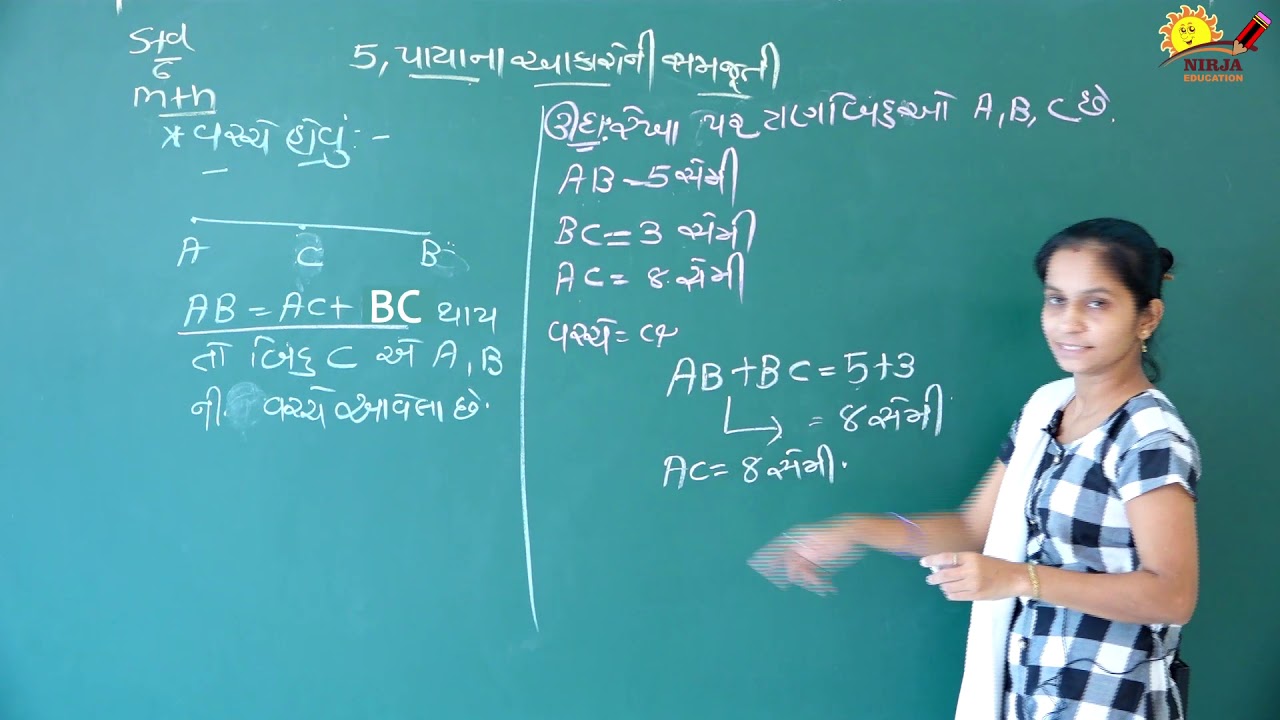 ધોવ
૬
m+n
5, પાયાના આકારોની સમજૂતી
* વચ્ચે હોવું:-
A C B
AB = AC + BC થાય
તો બિંદુ C એ A, B
ની વચ્ચે આવેલા છે.
ઊદા: રેખા પર ત્રણ બિંદુઓ A, B, C છે.
AB - 5 સેમી
BC = 3 સેમી
AC = 8 સેમી
વચ્ચે =
AB + BC = 5 + 3
= 8 સેમી
AC = 8 સેમી.
NIRJA
EDUCATION